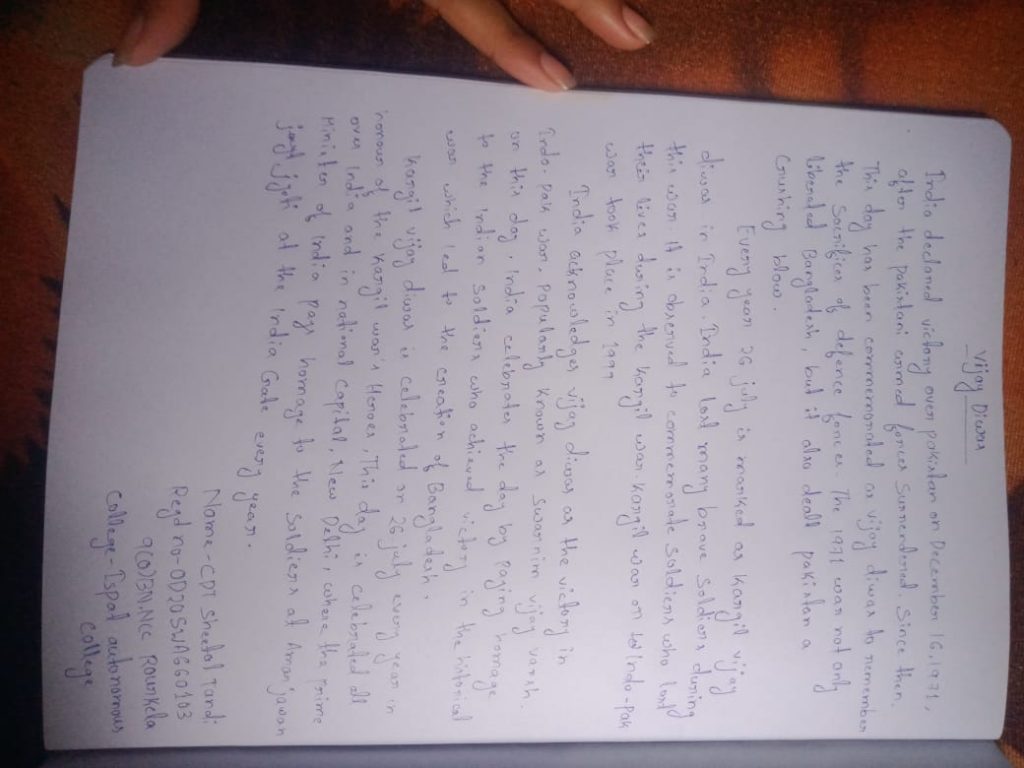 Vijay Diwas
India declared victory over pakistan on December 16, 1971,
after the pakistani armed forces surrendered. Since then.
This day has been commemorated as vijay diwas to remember
the Sacrifices of defence forces. The 1971 war not only
liberated Bangladesh, but it also dealt pakistan a
Crushing blow.
Every year 26 july is marked as Kargil vijay
diwas in India. India lost many brave Soldiers during
this war. It is observed to commemorate Soldiers who lost
their lives during the Kargil war. Kargil war on Indo-Pak
war took place in 1999
India acknowledges vijay diwas as the victory in
Indo-pak war, popularly known as Swarnim vijay varsh.
on this day, India celebrates the day by Paying homage
to the Indian Soldiers who achieved victory in the historical
war which led to the creation of Bangladesh.
Kargil vijay diwas is celebrated on 26 july every year in
honour of the Kargil war's Heroes, This day is celebrated all
over India and in national capital, New Delhi, where the prime
Minister of India pays homage to the Soldiers at Amarjawan
jyoti at the India Gate every year.
Name- CDT Sheetal
Regd no- OD20SWA660103
9(O)BN.NCC Rourkela
College- Ispat autonomous
College